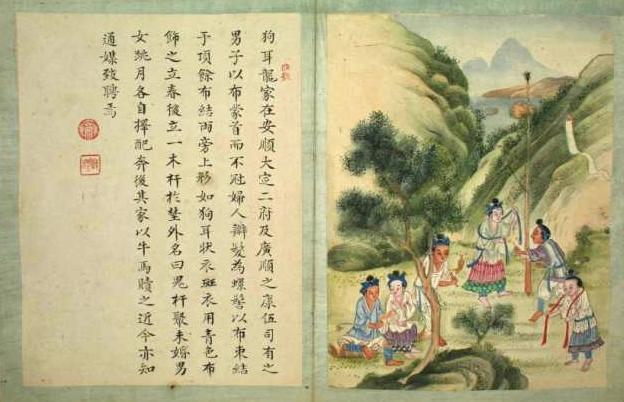 狗耳龍家在安順大定二府及廣順之康伍司有之
男子以布蒙首而不冠婦人辮髮為螺髻以布束結
于頂餘布結兩旁上形如狗耳狀衣斑衣用青色布
飾之立春後立一木杆於埜外名曰鬼杆聚未婚男
女跳月各自擇配奔後其家以牛馬贖之近今亦知
通媒致聘焉